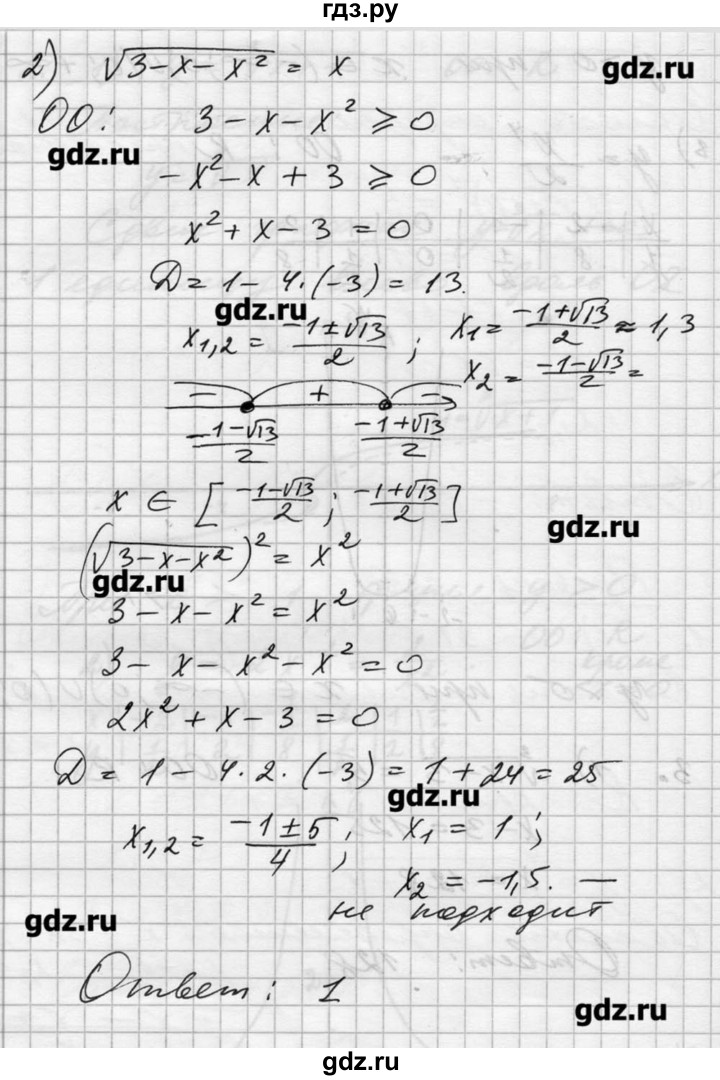 гдз.ру
2) √(3-x-x²) = x
gdz.ru
ОО: 3-x-x² ⩾ 0
gdz.ru
-x²-x+3 ⩾ 0
x²+x-3=0
D = 1-4·(-3) = 13.
gdz.ru
x₁,₂ = (-1±√13)/2 ; x₁ = (-1+√13)/2 ≈ 1,3
x₂ = (-1-√13)/2 =
- + -
(-1-√13)/2 (-1+√13)/2
x ∈ [(-1-√13)/2 ; (-1+√13)/2]
gdz.ru
(√(3-x-x²))² = x²
gdz.ru
3-x-x² = x²
3-x-x²-x² = 0
2x²+x-3=0
D = 1-4·2·(-3) = 1+24 = 25
gdz.ru
x₁,₂ = (-1±5)/4 ; x₁ = 1 ;
x₂ = -1,5. —
не подходит
gdz.ru
Ответ: 1
gdz.ru
gdz.ru